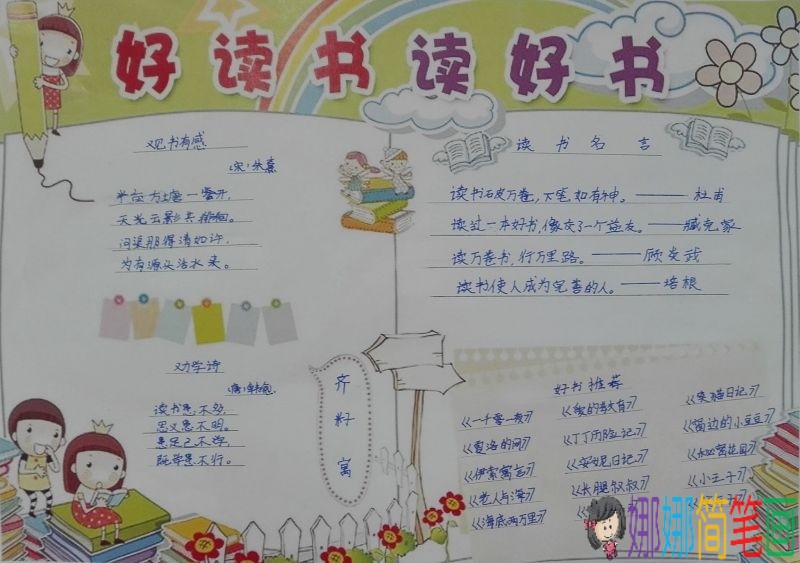 好读书读好书
观书有感
宋:朱熹
半亩方塘一鉴开,
天光云影共徘徊。
问渠那得清如许,
为有源头活水来。
劝学诗
唐:韩愈
读书患不多,
思义患不明。
患足己不学,
既学患不行。
齐
籽
寓
读书名言
读书破万卷,下笔如有神。——杜甫
读过一本好书,像交了一个益友。——臧克家
读万卷书,行万里路。——顾炎武
读书使人成为完善的人。——培根
好书推荐
《一千零一夜》
《夏洛的网》
《伊索寓言》
《老人与海》
《海底两万里》
《爱的教育》
《丁丁历险记》
《安妮日记》
《长腿叔叔》
《笑猫日记》
《窗边的小豆豆》
《秘密花园》
《小王子》
娜娜简笔画